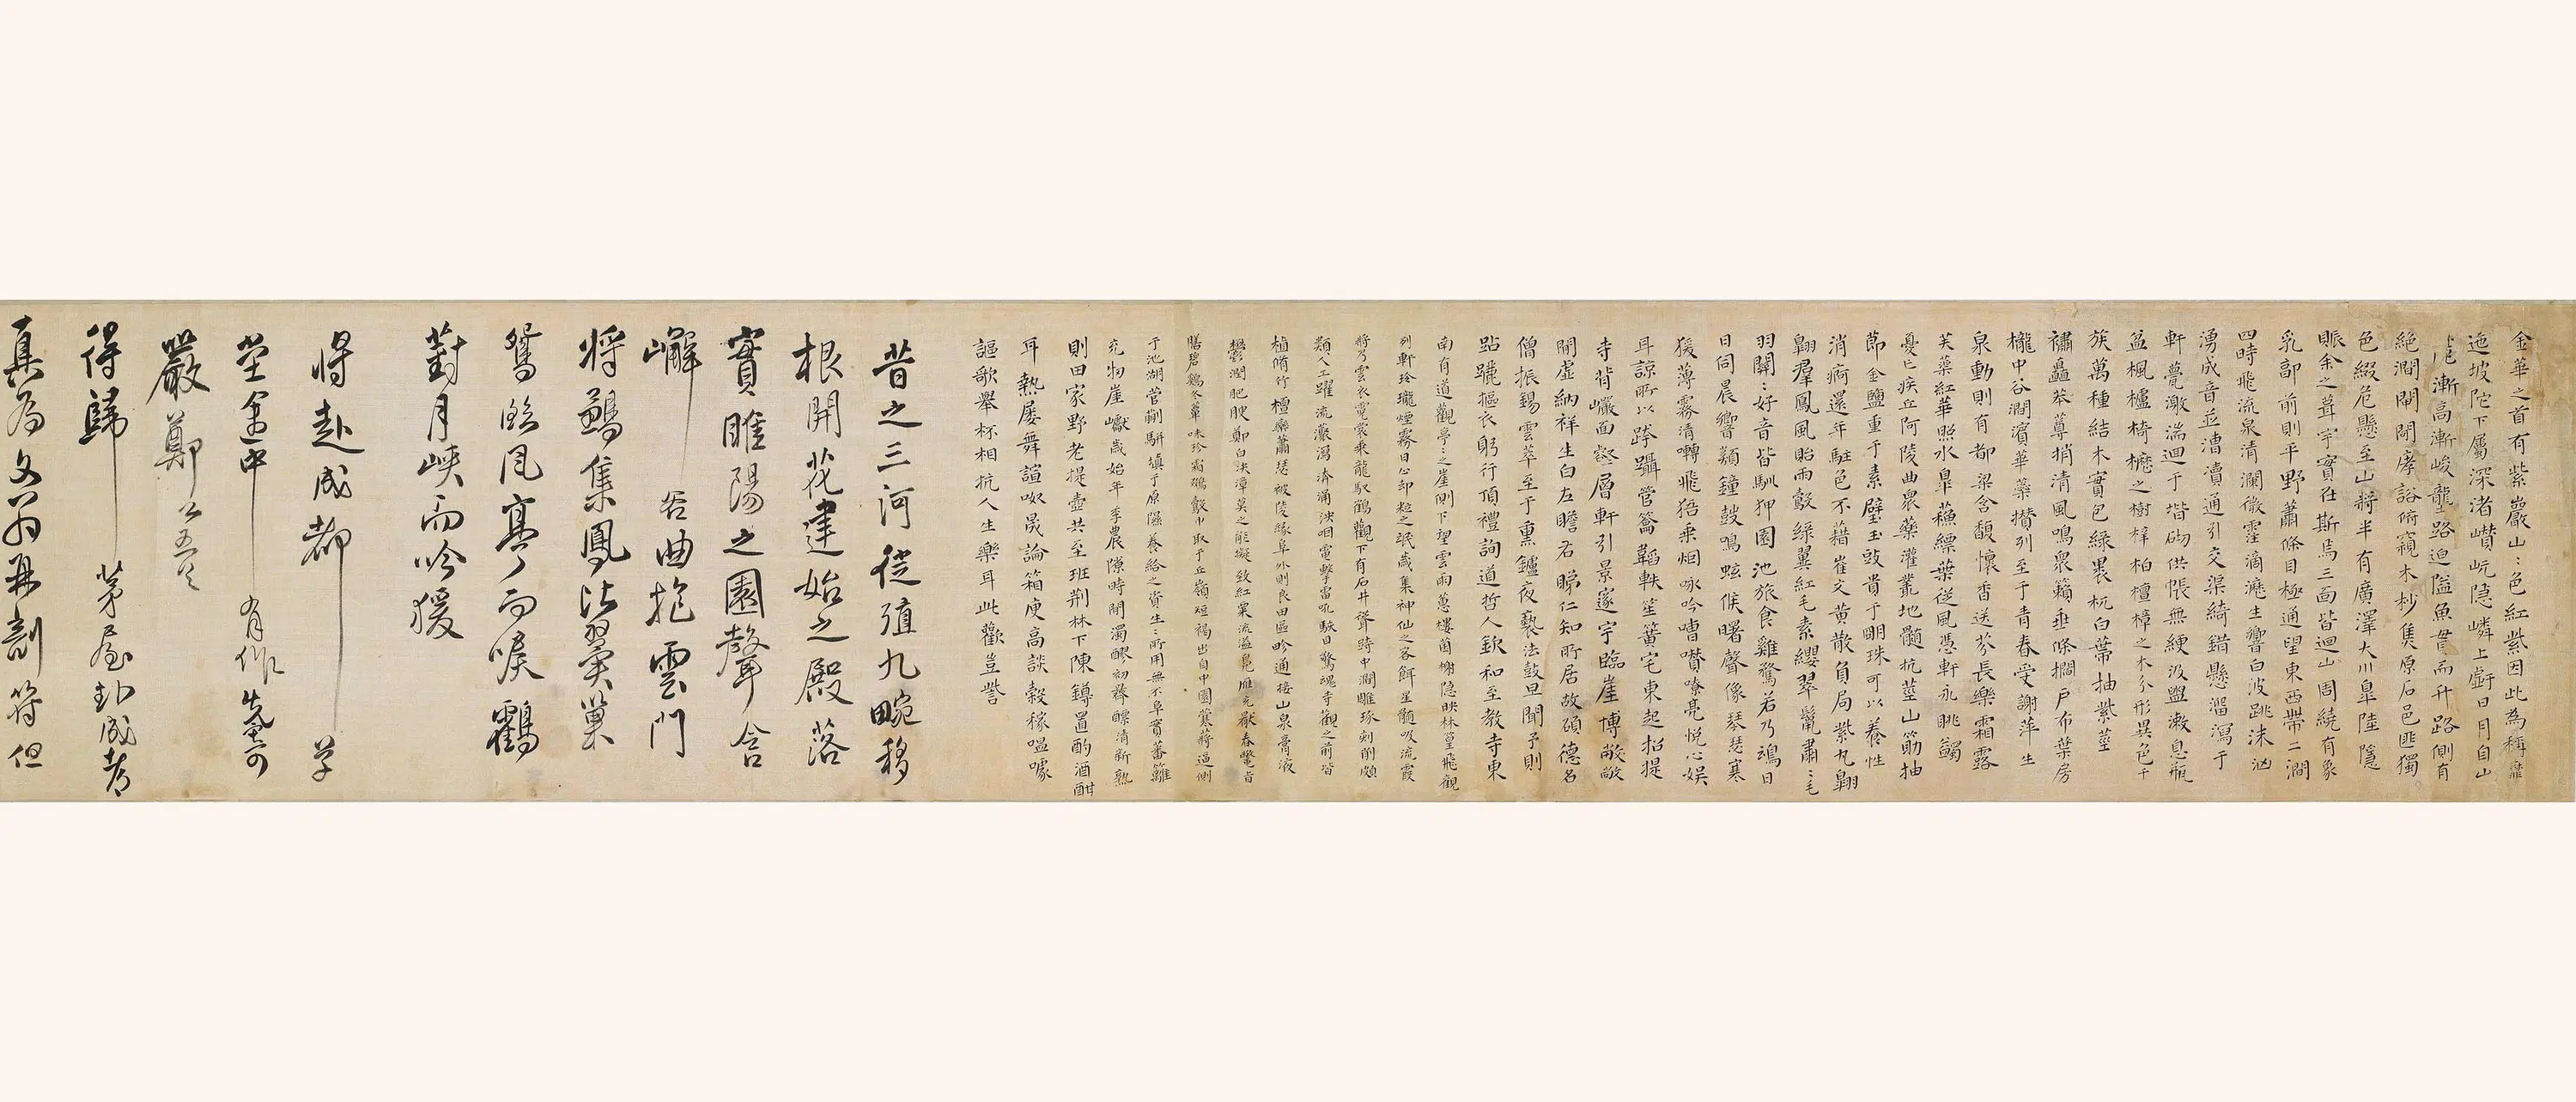 金華之首有紫巖山〻色紅紫因此為稱靡
迤坡陀下屬深渚巑岏隱嶙上虧日月自山
麓漸高漸峻壟路迫隘魚貫而升路側有
絕澗閜閕摩豁俯窺木杪焦原石邑匪獨
色綴危懸至山將半有廣澤大川皋陸隱
賑余之葺宇實在斯焉三面皆迴山周繞有象
乳郭前則平野蕭條目極通望東西帶二澗
四時飛流泉清瀾微霔滴瀝生響白波跳沫洶
湧成音並漕瀆通引交渠綺錯懸溜瀉于
軒甍激湍迴于堦砌供帳無綆汲盥漱息瓶
盆楓櫨椅櫪之樹梓柏檀樟之木分形異色千
族萬種結朱實包綠裹杌白蒂抽紫莖
橚矗苯䔿捎清風鳴眾籟垂條櫩戶布葉房
櫳中谷澗濱華藥攢列至于青春受謝萍生
泉動則有都梁含馥懷香送芬長樂霜露
芙蕖紅華照水皋蘇縹葉從風憑軒永眺蠲
憂亡疾丘阿陵曲眾藥灌叢地髓抗莖山筋抽
節金鹽重于素璧玉豉貴于明珠可以養性
消痾還年駐色不藉崔文黃散負局紫丸翱
翾羣鳳風胎雨鷇綠翼紅毛素纓翠鬣肅〻毛
羽關〻好音皆馴狎園池旅食雞鶩若乃鴻日
日伺晨響類鐘鼓鳴蛩候曙聲像琴瑟寒
猨薄霧清囀飛狖乘烟咏吟嘈囋嘹亮悅心娛
耳諒所以跨躡管籥韜軼笙簧宅東起招提
寺背巖面壑層軒引景邃宇臨崖博敞
閒虛納祥生白左瞻右睇仁知所居故碩德名
僧振錫雲萃至于熏鑪夜爇法鼓旦聞予則
跕躧摳衣躬行頂禮詢道哲人欽和至教寺東
南有道觀亭〻之崖側下望雲雨蕙樓菌榭隱映林篁飛觀
列軒玲瓏煙霧日止却粒之氓歲集神仙之客餌星髓吸流霞
將乃雲衣霓裳乘龍馭鶴觀下有石井聳跱中澗雕琢刻削頗
類人工躍流瀠瀉渀涌泱咽電擊雷吼駭目驚魂寺觀之前皆
植脩竹檀欒蕭瑟被陵緣阜外則良田區畛通接山泉膏液
鬱潤肥腴鄭白決漳莫之能擬致紅粟流溢鳧雁充厭春鼈旨
膳碧雞冬蕈味珍霜鵽縠巾取于丘嶺短褐出自中園莞蔣逼側
于池湖菅蒯駢填于原隰養給之資生〻所用無不阜實蕃籬
充牣崖巘歲始年季農隙時閒濁醪初醱醥清新熟
則田家野老提壺共至班荆林下陳鐏置酌酒酣
耳熱屢舞諠呶晟論箱庾高談穀稼嗢噱
謳歌舉杯相抗人生樂耳此歡豈訾
昔之三河徙殖九畹移
根開花建始之殿落
實睢陽之園聲含
嶰谷曲抱雲門
將鶵集鳳比翼巢
鴛臨風亭而唳鶴
對月峽而吟猨
將赴成都草
堂途中有作先寄
嚴鄭公五首
得歸茅屋赴成都
真為文翁再剖符但